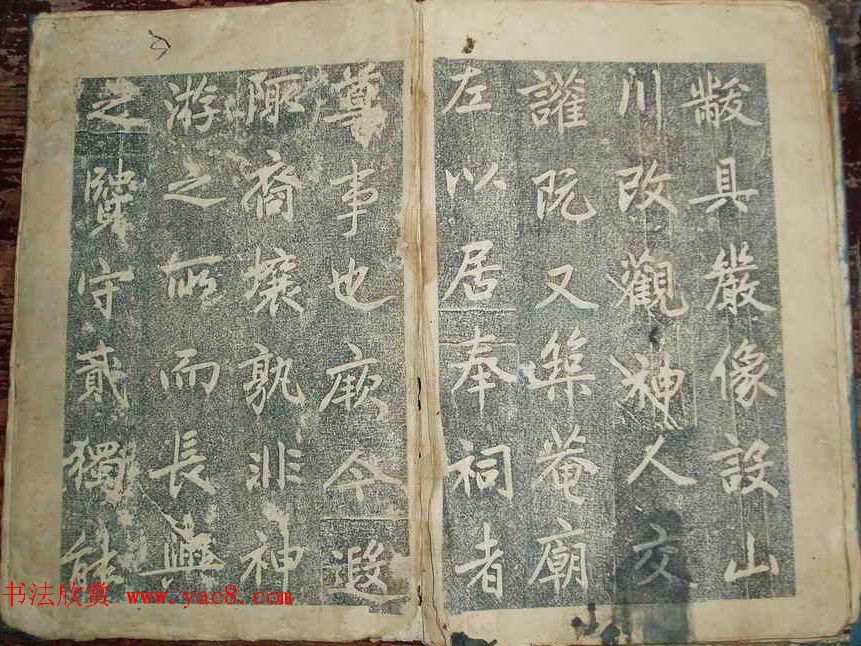 黻具嚴像設山
川改觀神人交
讙既又築菴廟
左以居奉祠者
尊事也厥今遐
陬裔壤孰非神
游之所而長興
之贤守貳獨能
书法欣赏 www.yac8.com